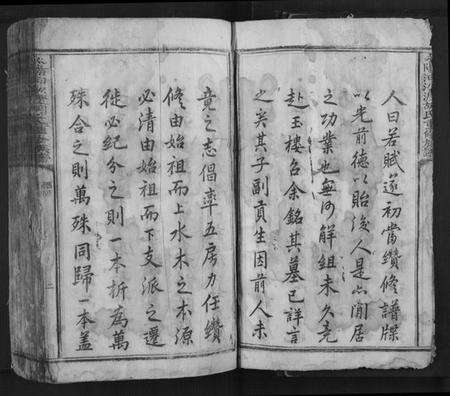 人曰若賦遂初當纘修譜牒
以光前德以貽後人是亦閒居
之功業也無何解組未久竟
赴玉樓召余銘其墓已詳言
之矣其子副貢生因前人未
竟之志倡率五房力任纘
修由始祖而上水木之本源
必清由始祖而下支派之遷
徙必紀分之則一本析為萬
殊合之則萬殊同歸一本蓋